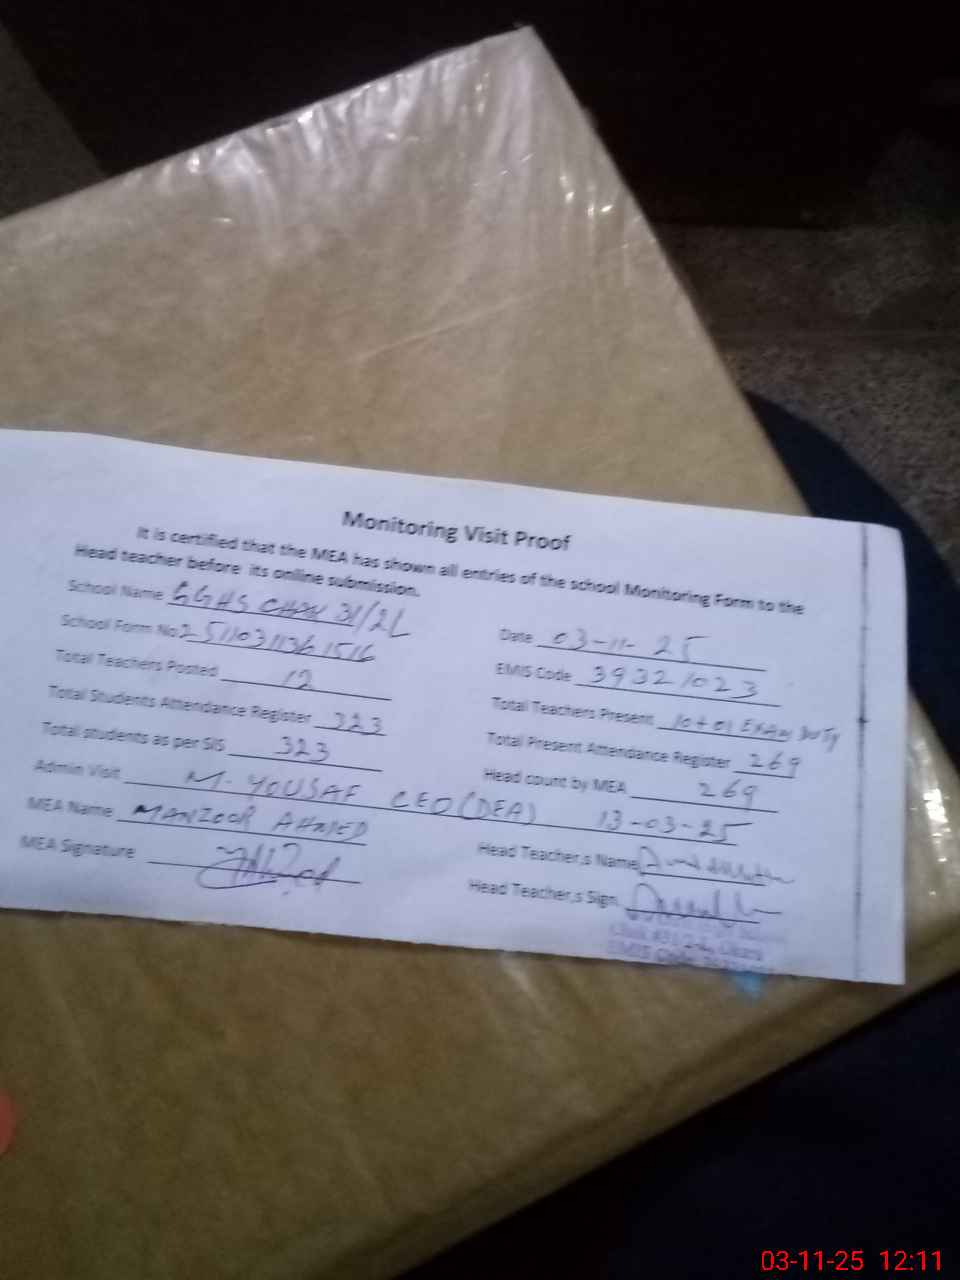 Monitoring Visit Proof
It is certified that the MEA has shown all entries of the school Monitoring Form to the
Head teacher before its online submission.
School Name GGHS CHAK 31/2L
Date 03-11-25
School Form No. 25110311361516
EMIS Code 39321023
Total Teachers Posted 12
Total Teachers Present 10+01 EXAM DUTY
Total Students Attendance Register 323
Total Present Attendance Register 269
Total students as per SIS 323
Head count by MEA 269
Admin Visit M. YOUSAF CEO (DEA) 13-03-25
MEA Name MANZOOR AHMED
Head Teacher,s Name
MEA Signature
Head Teacher,s Sign
03-11-25 12:11